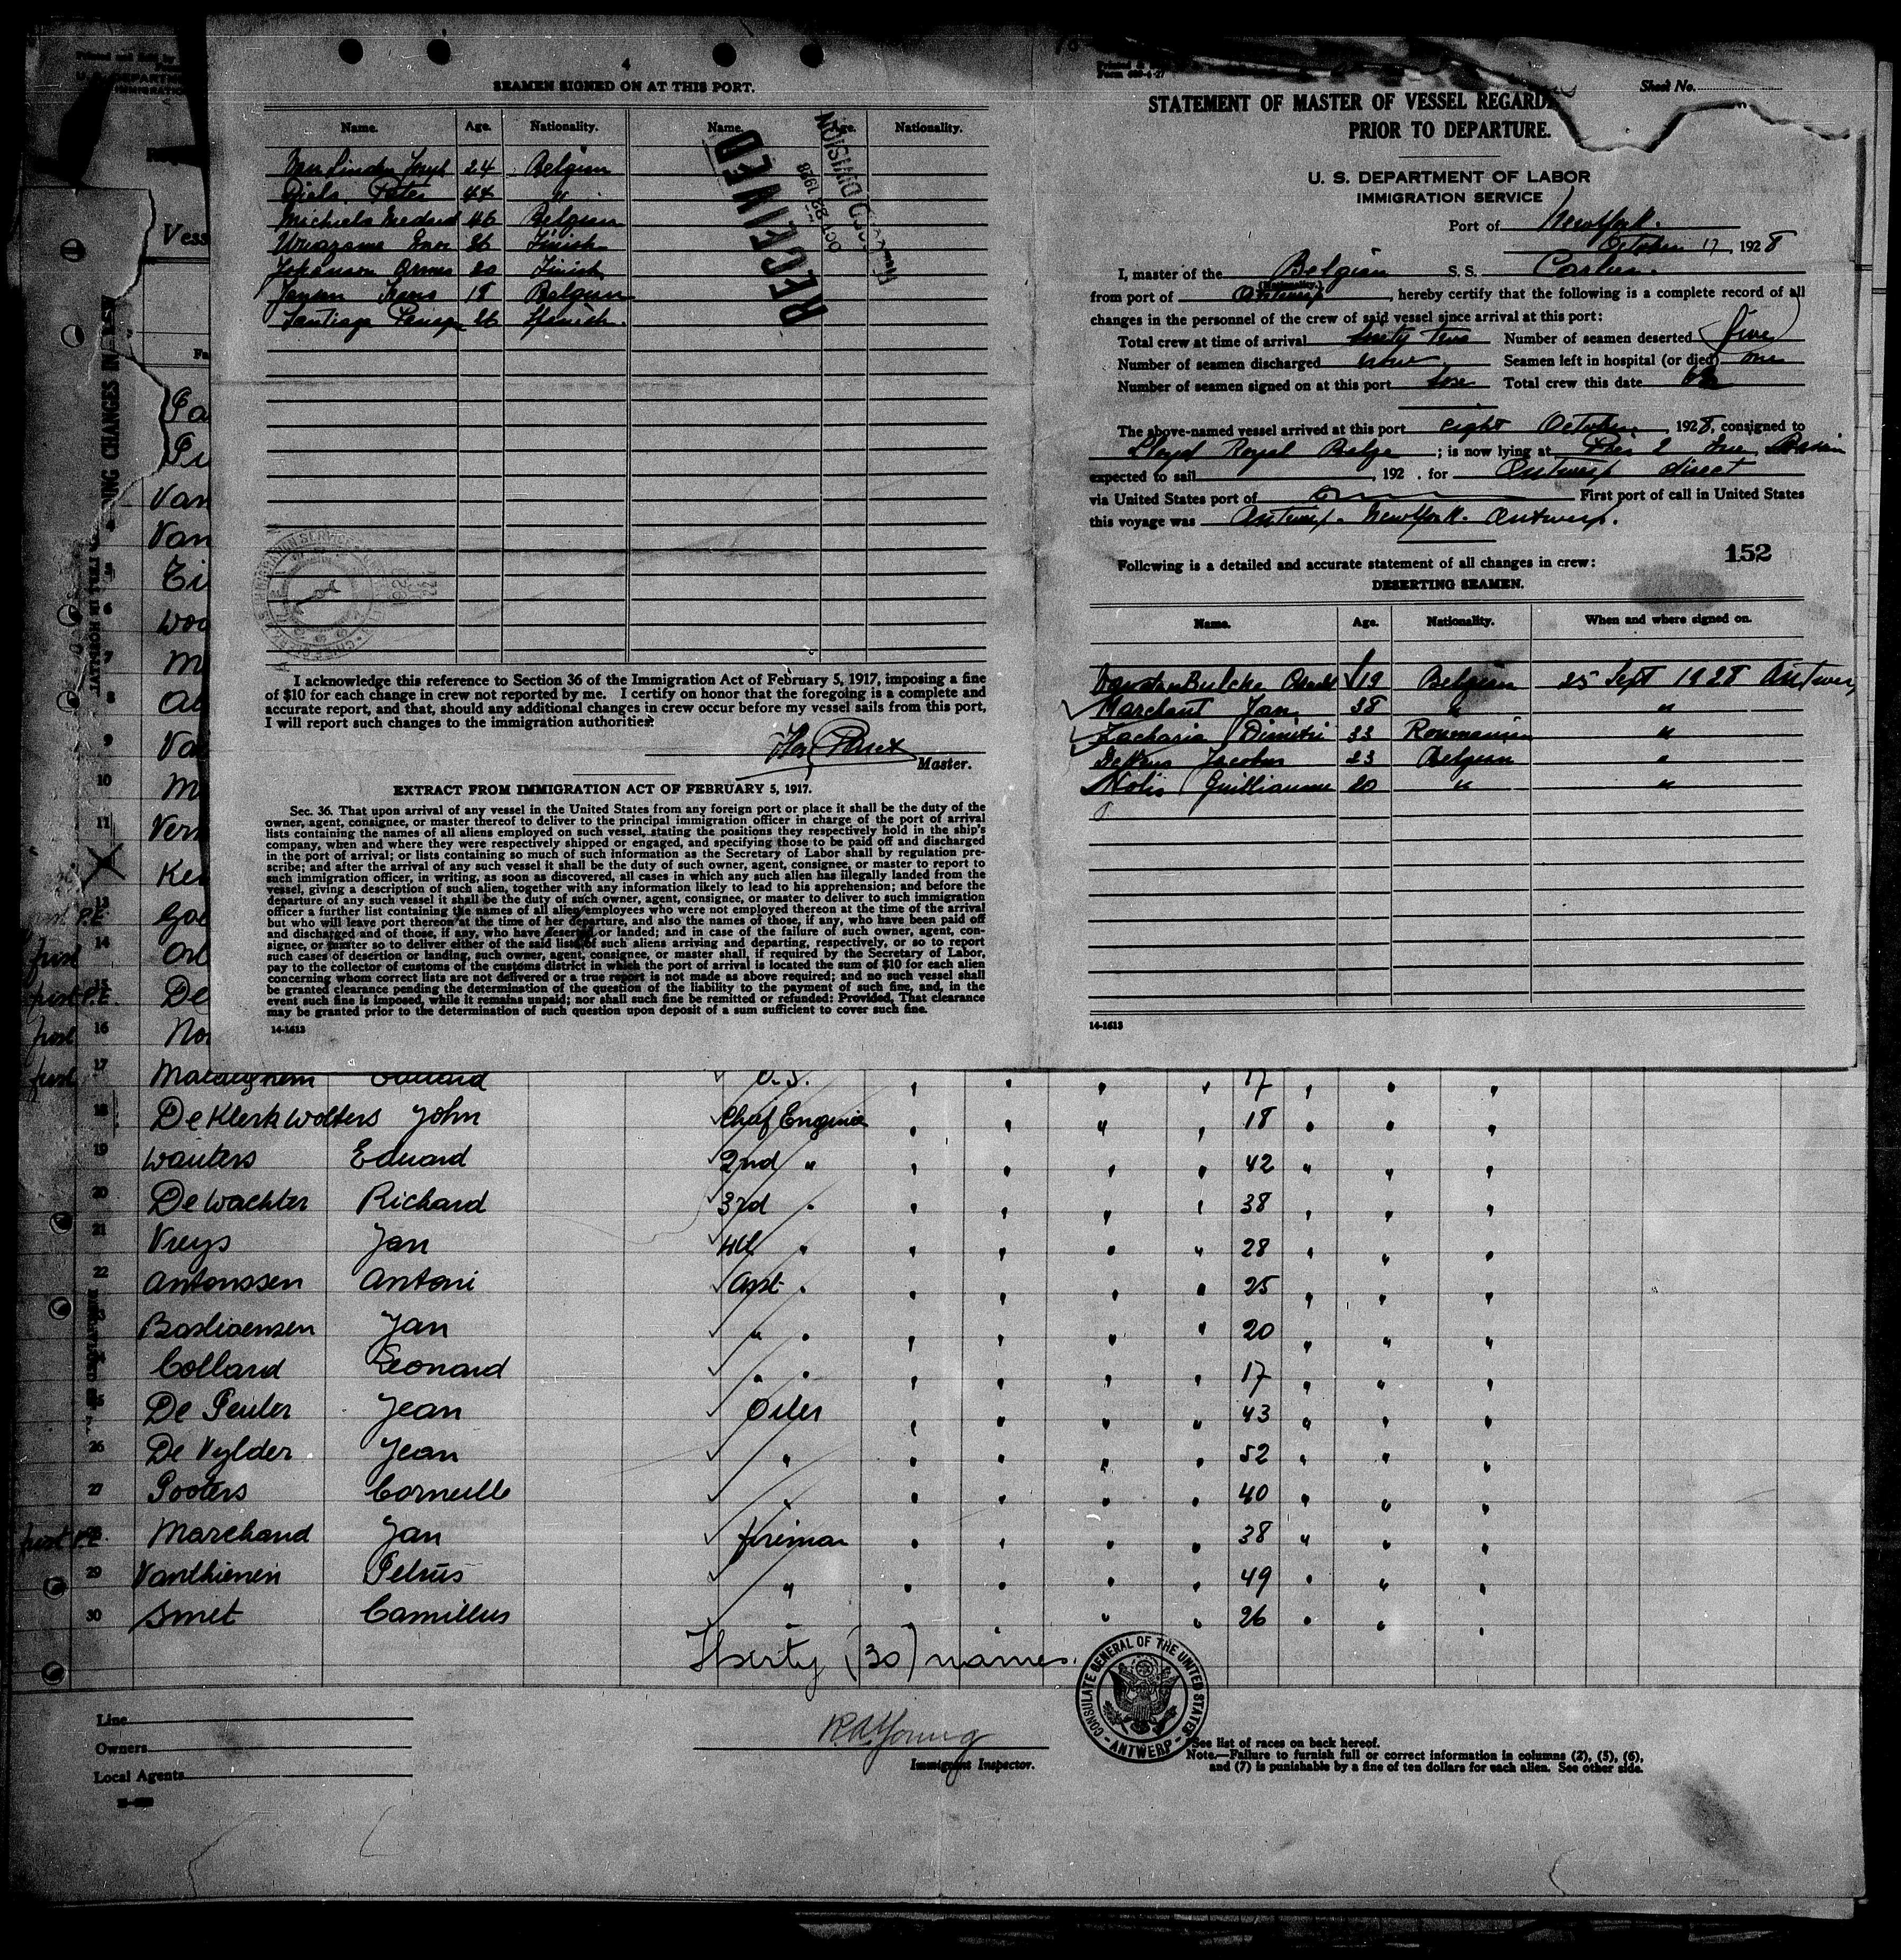 4
SEAMEN SIGNED ON AT THIS PORT.
Name. Age. Nationality. Name. Age. Nationality.
24 Belgian
Peter 44 "
Michiels Medard 46 Belgian
26 Finish
Johanson 20 Finish
Jansen Frans 18 Belgian
Santiago 26 Spanish
RECEIVED
OCT 22 1928
DIVISION
I acknowledge this reference to Section 36 of the Immigration Act of February 5, 1917, imposing a fine
of $10 for each change in crew not reported by me. I certify on honor that the foregoing is a complete and
accurate report, and that, should any additional changes in crew occur before my vessel sails from this port,
I will report such changes to the immigration authorities.
Master.
EXTRACT FROM IMMIGRATION ACT OF FEBRUARY 5, 1917.
Sec. 36. That upon arrival of any vessel in the United States from any foreign port or place it shall be the duty of the
owner, agent, consignee, or master thereof to deliver to the principal immigration officer in charge of the port of arrival
lists containing the names of all aliens employed on such vessel, stating the positions they respectively hold in the ship's
company, when and where they were respectively shipped or engaged, and specifying those to be paid off and discharged
in the port of arrival; or lists containing so much of such information as the Secretary of Labor shall by regulation pre-
scribe; and after the arrival of any such vessel it shall be the duty of such owner, agent, consignee, or master to report to
such immigration officer, in writing, as soon as discovered, all cases in which any such alien has illegally landed from the
vessel, giving a description of such alien, together with any information likely to lead to his apprehension; and before the
departure of any such vessel it shall be the duty of such owner, agent, consignee, or master to deliver to such immigration
officer a further list containing the names of all alien employees who were not employed thereon at the time of the arrival
but who will leave port thereon at the time of her departure, and also the names of those, if any, who have been paid off
and discharged and of those, if any, who have deserted or landed; and in case of the failure of such owner, agent, con-
signee, or master so to deliver either of the said lists of such aliens arriving and departing, respectively, or so to report
such cases of desertion or landing, such owner, agent, consignee, or master shall, if required by the Secretary of Labor,
pay to the collector of customs of the customs district in which the port of arrival is located the sum of $10 for each alien
concerning whom correct lists are not delivered or a true report is not made as above required; and no such vessel shall
be granted clearance pending the determination of the question of the liability to the payment of such fine, and, in the
event such fine is imposed, while it remains unpaid; nor shall such fine be remitted or refunded: Provided, That clearance
may be granted prior to the determination of such question upon deposit of a sum sufficient to cover such fine.
14-1613
Sheet No.
STATEMENT OF MASTER OF VESSEL REGARD
PRIOR TO DEPARTURE.
U. S. DEPARTMENT OF LABOR
IMMIGRATION SERVICE
Port of New York.
October 17, 1928
I, master of the Belgian S. S. Carlier.
(Nationality.)
from port of Antwerp, hereby certify that the following is a complete record of all
changes in the personnel of the crew of said vessel since arrival at this port:
Total crew at time of arrival sixty two Number of seamen deserted five
Number of seamen discharged none Seamen left in hospital (or died) one
Number of seamen signed on at this port Total crew this date
The above-named vessel arrived at this port eight October, 1928, consigned to
Lloyd Royal Belge; is now lying at Pier 2 Erie Basin
expected to sail , 192 . for Antwerp direct
via United States port of First port of call in United States
this voyage was Antwerp. New York. Antwerp.
152
Following is a detailed and accurate statement of all changes in crew:
DESERTING SEAMEN.
Name. Age. Nationality. When and where signed on.
Vanden Bulcke 19 Belgian 25 Sept 1928 Antwer
Marchant Jan 38 " "
Zacharia Dimitri 33 Roumanian "
Jacobus 23 Belgian "
Guilliaume 20 " "
14-1613
DING CHANGES IN CREW
Vess
Pa
Van
Van
5
6
7 M
8
9 Va
10 M
11 Ver
Ker
13
14
De
16 No
17
O.S. 17
18 De Klerk Wolters John Chief Engineer 18
19 Wauters Eduard 2nd " 42
20 De Wachter Richard 3rd " 38
21 Vreys Jan 4th " 28
22 Antonssen Antoni Asst " 25
23 Bastiaensen Jan " " 20
24 Collard Leonard " " 17
25 De Peuter Jean Oiler 43
26 De Vylder Jean " 52
27 Pooters Corneille " 40
28 Marchand Jan fireman 38
29 Vanthienen Petrus " 49
30 Smet Camillus " 26
Therty (30) names.
Line
Owners
Local Agents
R. A. Young
Immigrant Inspector.
CONSULATE GENERAL OF THE UNITED STATES
ANTWERP
See list of races on back hereof.
Note.—Failure to furnish full or correct information in columns (2), (5), (6),
and (7) is punishable by a fine of ten dollars for each alien. See other side.